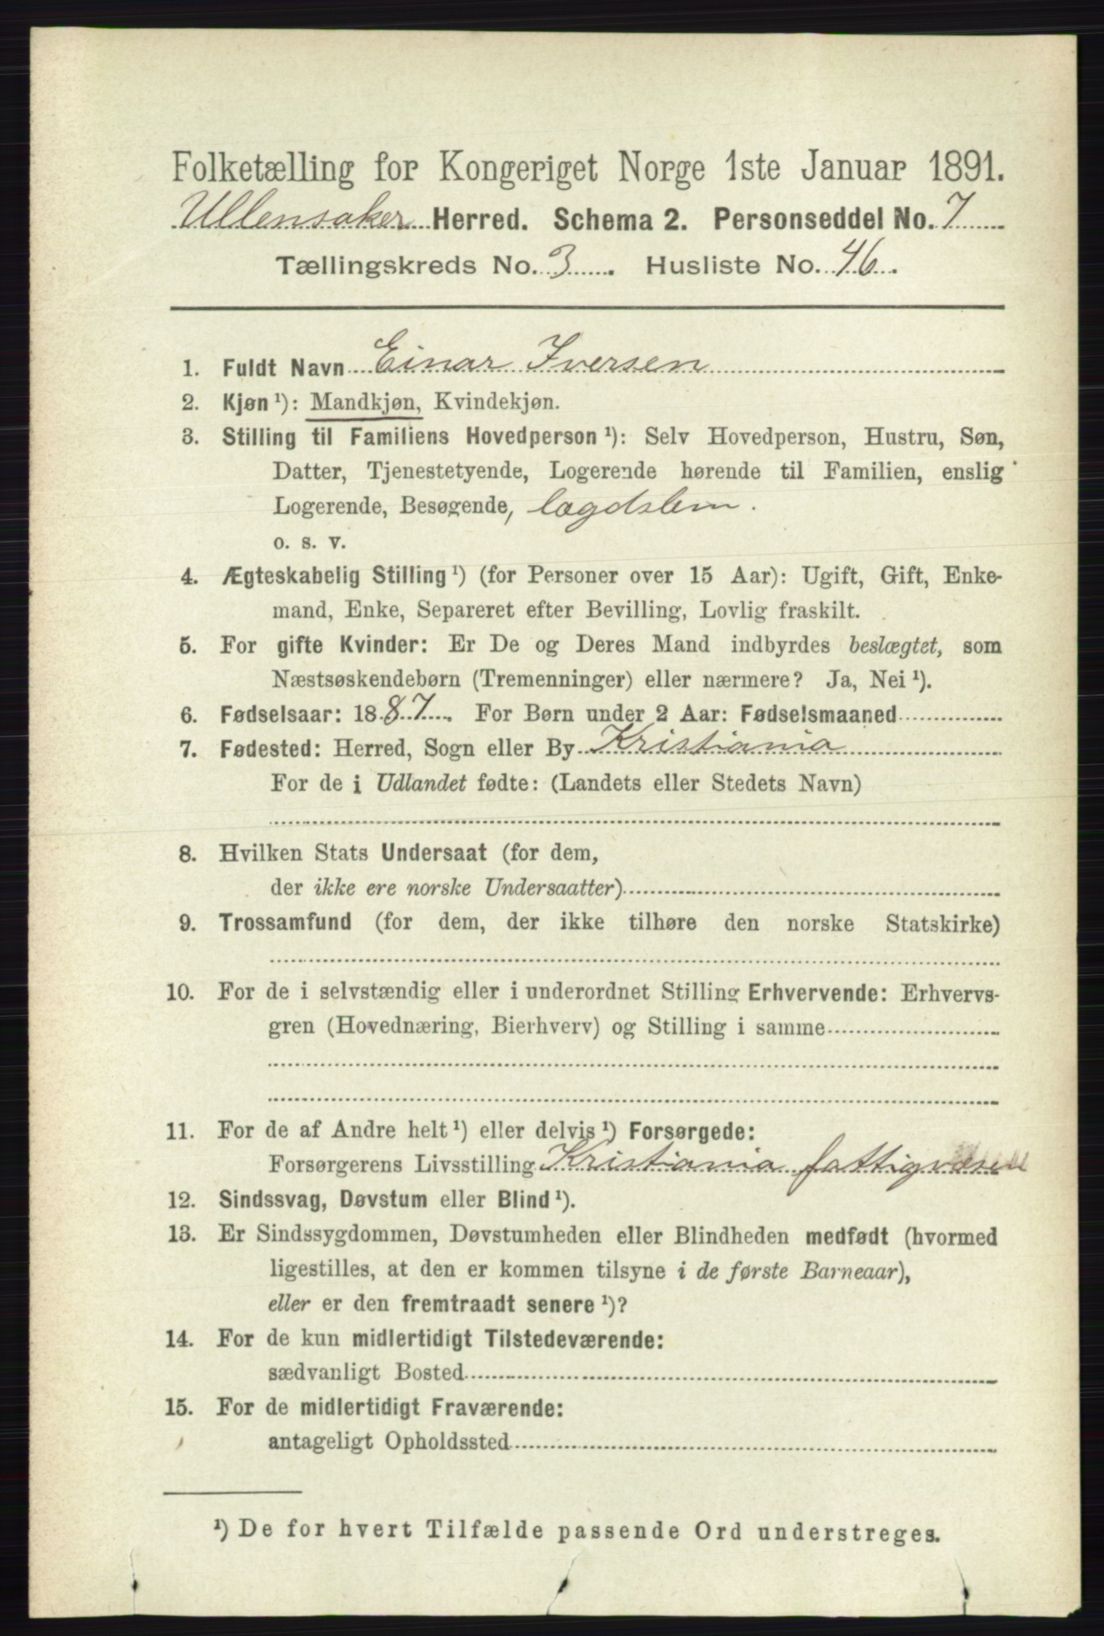 Folketælling for Kongeriget Norge 1ste Januar 1891.
Ullensaker Herred. Schema 2. Personseddel No. 7
Tællingskreds No. 3. Husliste No. 46.
1. Fuldt Navn Einar Iversen
2. Kjøn ¹): Mandkjøn, Kvindekjøn.
3. Stilling til Familiens Hovedperson ¹): Selv Hovedperson, Hustru, Søn,
Datter, Tjenestetyende, Logerende hørende til Familien, enslig
Logerende, Besøgende, lægdslem.
o. s. v.
4. Ægteskabelig Stilling ¹) (for Personer over 15 Aar): Ugift, Gift, Enke-
mand, Enke, Separeret efter Bevilling, Lovlig fraskilt.
5. For gifte Kvinder: Er De og Deres Mand indbyrdes beslægtet, som
Næstsøskendebørn (Tremenninger) eller nærmere? Ja, Nei ¹).
6. Fødselsaar: 1887. For Børn under 2 Aar: Fødselsmaaned
7. Fødested: Herred, Sogn eller By Kristiania
For de i Udlandet fødte: (Landets eller Stedets Navn)
8. Hvilken Stats Undersaat (for dem,
der ikke ere norske Undersaatter)
9. Trossamfund (for dem, der ikke tilhøre den norske Statskirke)
10. For de i selvstændig eller i underordnet Stilling Erhvervende: Erhvervs-
gren (Hovednæring, Bierhverv) og Stilling i samme
11. For de af Andre helt ¹) eller delvis ¹) Forsørgede:
Forsørgerens Livsstilling Kristiania fattigvæsen
12. Sindssvag, Døvstum eller Blind ¹).
13. Er Sindssygdommen, Døvstumheden eller Blindheden medfødt (hvormed
ligestilles, at den er kommen tilsyne i de første Barneaar),
eller er den fremtraadt senere ¹)?
14. For de kun midlertidigt Tilstedeværende:
sædvanligt Bosted
15. For de midlertidigt Fraværende:
antageligt Opholdssted
¹) De for hvert Tilfælde passende Ord understreges.